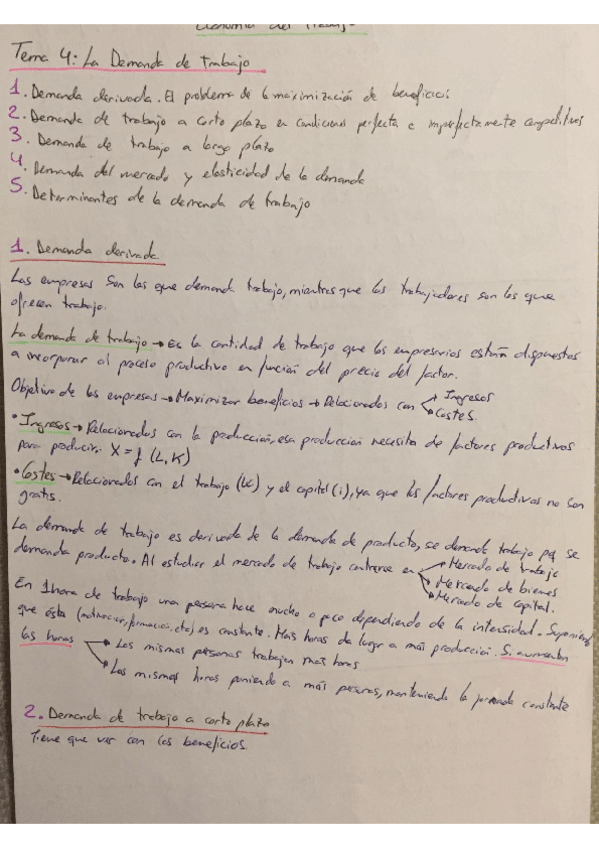 Economía del Trabajo
Tema 4: La Demanda de trabajo
1. Demanda derivada. El problema de la maximización de beneficios
2. Demanda de trabajo a corto plazo en condiciones perfecta e imperfectamente competitivas
3. Demanda de trabajo a largo plazo
4. Demanda del mercado y elasticidad de la demanda
5. Determinantes de la demanda de trabajo
1. Demanda derivada
Las empresas son las que demanda trabajo, mientras que los trabajadores son los que
ofrecen trabajo.
La demanda de trabajo → Es la cantidad de trabajo que los empresarios estarán dispuestos
a incorporar al proceso productivo en función del precio del factor.
Objetivo de las empresas → Maximizar beneficios → Relacionados con → Ingresos
→ Costes.
• Ingresos → Relacionados con la producción, esa producción necesita de factores productivos
para producir. X = f (L, K)
• Costes → Relacionados con el trabajo (W) y el capital (i), ya que los factores productivos no son
gratis.
La demanda de trabajo es derivada de la demanda de producto, se demanda trabajo pq se
demanda producto. Al estudiar el mercado de trabajo entrarse en → Mercado de trabajo
→ Mercado de bienes
→ Mercado de capital.
En 1 hora de trabajo una persona hace mucho o poco dependiendo de la intensidad. Suponiendo
que ésta (motivación, formación, etc) es constante. Más horas da lugar a más producción. Si aumentan
las horas → Las mismas personas trabajan más horas
→ Las mismas horas poniendo a más personas, manteniendo la jornada constante
2. Demanda de trabajo a corto plazo
Tiene que ver con los beneficios.